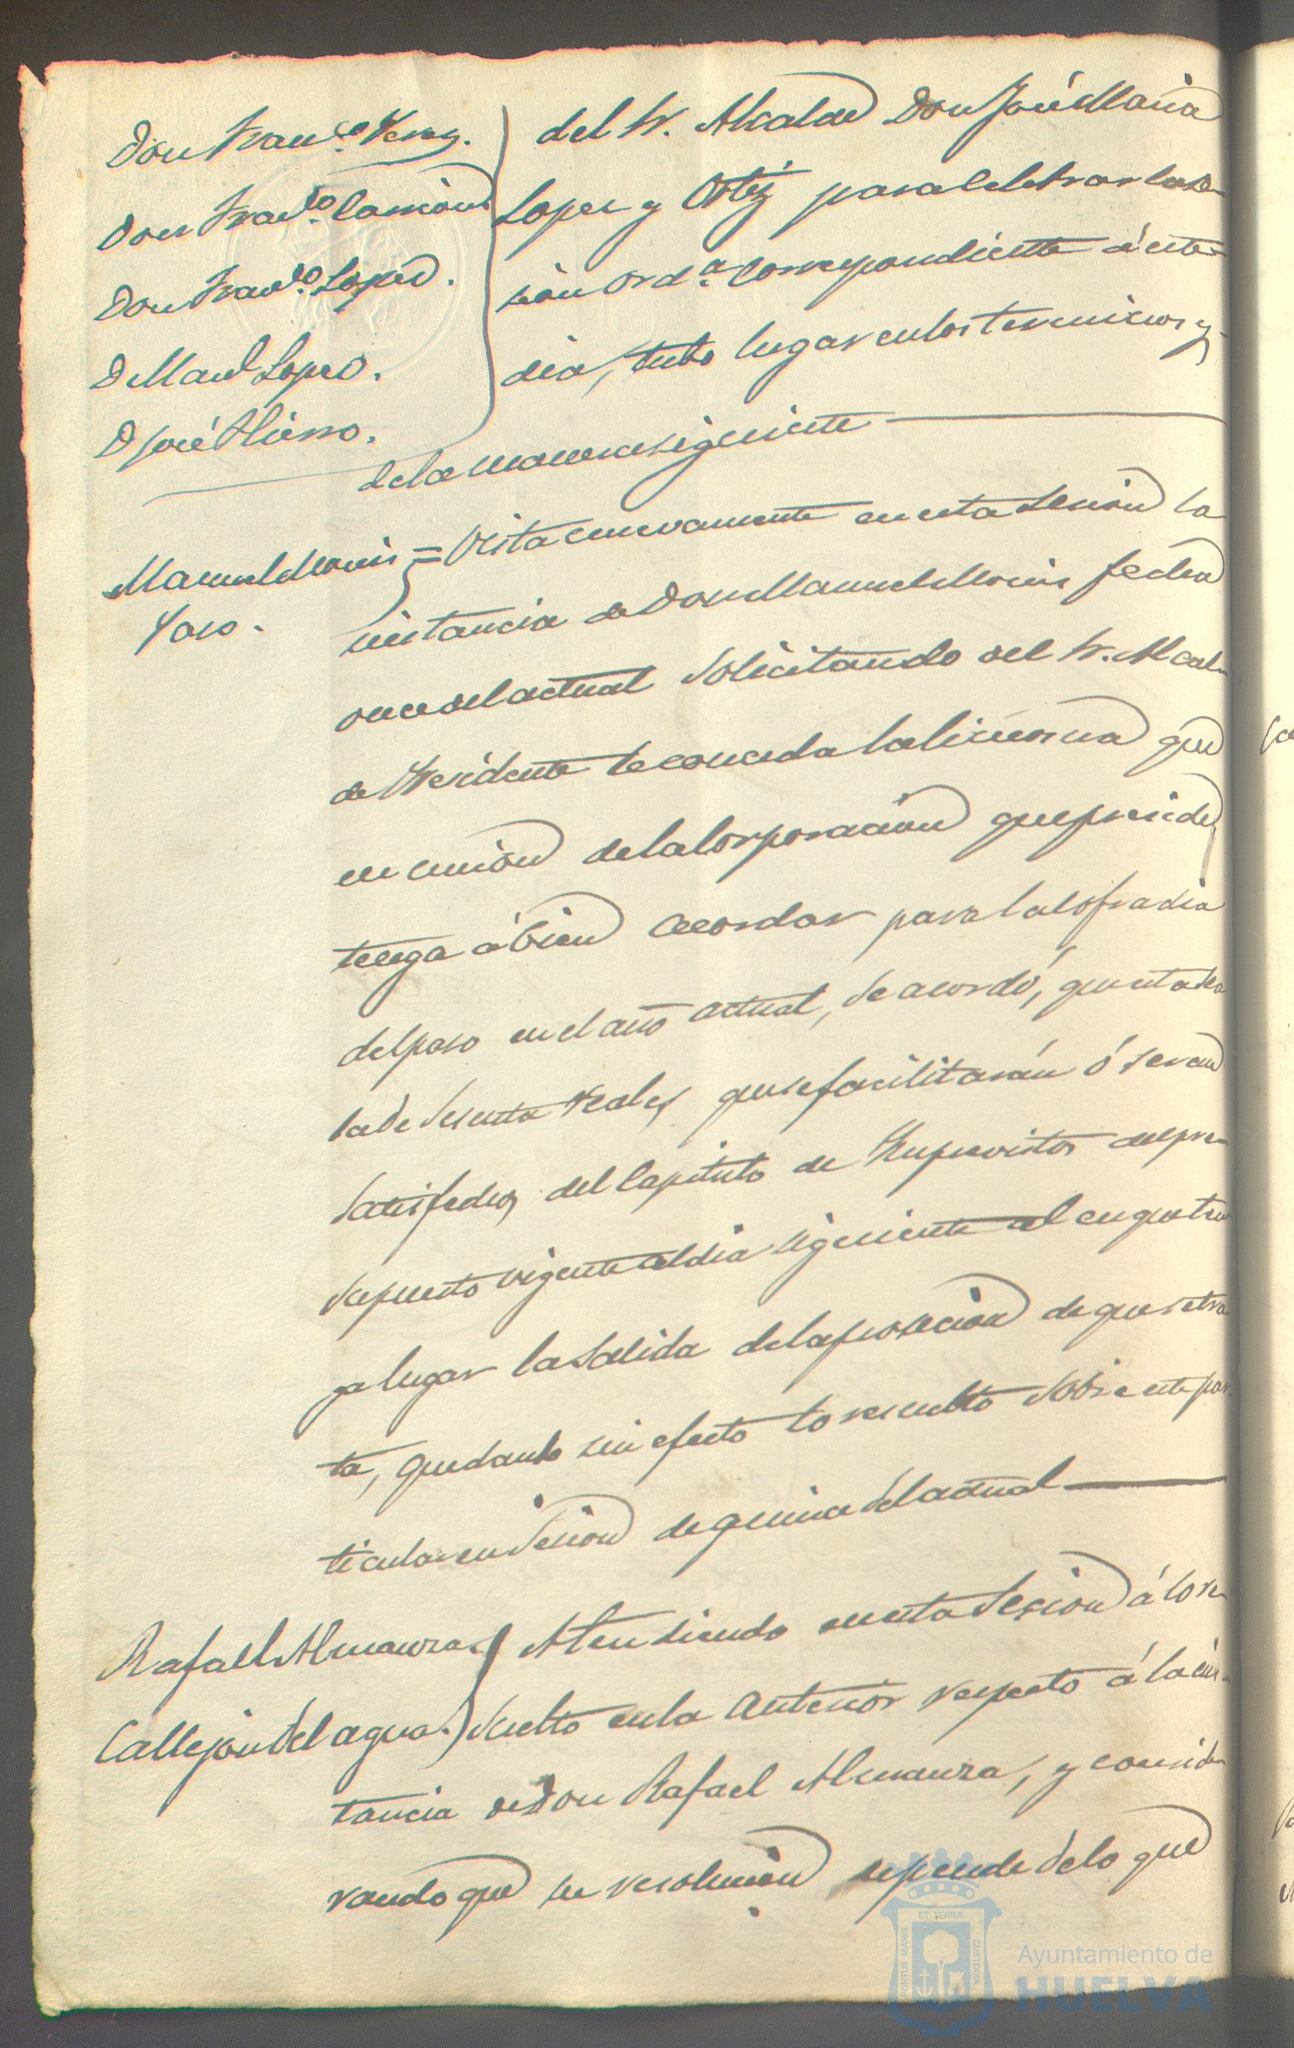 Don Fran.co Veraz.
Don Franco. Carrion
Don Franco. Lopez.
D Manl Lopez.
D José Hierro.
del Sr. Alcalde Don José Maria
Lopez y Ortiz para celebrar la se-
sión ord.a correspondiente á este
dia, tubo lugar en los terminos y
de la manera siguiente
Manuel Moris =
Paso.
Vista nuevamente en esta sesion la
instancia de Don Manuel Moris fecha
once del actual solicitando del Sr. Alcal-
de Presidente le conceda la limosna que
en union de la Corporacion que preside
tenga á bien acordar para la Cofradia
del paso en el año actual, se acordó, que esta sea
la de sesenta reales que se facilitarán ó seran
satisfechos del Capitulo de Imprevistos del pre-
supuesto vigente al dia siguiente al en que ten-
ga lugar la salida de la prosecion de que se tra
ta, quedando sin efecto lo resuelto sobre este par-
ticular en sesion de quince del actual
Rafael Almanza
Callejon del agua.
Atendiendo en esta sesion á lo re-
suelto en la anterior respecto á la ins-
tancia de Don Rafael Almanza, y conside
rando que su resolucion depende de lo que
PORTUS MARIS ET TERRÆ CUSTODIA
Ayuntamiento de
HUELVA